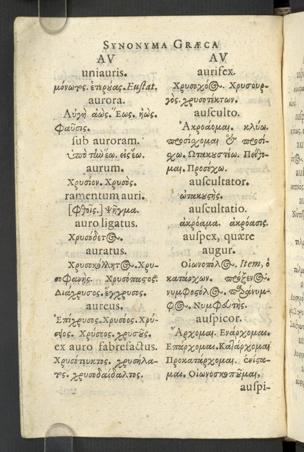 SYNONYMA GRÆCA
AV
uniauris.
μόνωτος. ἑτερούας. Eustat.
aurora.
Αὐγὴ ἀώς. Ἕως. ἠώς.
Φαῦσις.
sub auroram.
ὑπὸ τὴν ἕω. εἰς ἕω.
aurum.
Χρυσίον. Χρυσὸς.
ramentum auri.
Ψῆγμα.
auro ligatus.
Χρυσόδετος.
auratus.
Χρυσοκόλλητος. Χρυ-
Διάχρυσος. ἔγχρυσος.
aureus.
Ἐπίχρυσος. Χρύσεος. Χρύ-
σειος. Χρύσεος. χρυσοῦς.
ex auro fabrefactus.
Χρυσότυκτος. χρυσήλα-
τος. χρυσοδαίδαλτος.
AV
aurifex.
Χρυσοχόος. Χρυσουρ-
γός. χρυσοτέκτων.
ausculto.
Ἀκροάομαι. κλύω.
προσέχομαι & προσέ-
χω. Ὠτακουστέω. Πείθο-
μαι. Προσέχω.
auscultator.
ὠτακουστής.
auscultatio.
ἀκρόαμα. ἀκρόασις.
auspex, quære
augur.
Οἰωνοπόλος. Item, ὁ
κατάρχων. πρόξενος.
νυμφευτὴς.
auspicor.
Ἄρχομαι. Ἐνάρχομαι.
Ἐπάρχομαι. Κατάρχομαι
Προκατάρχομαι. ἐνίστα-
μαι. Οἰωνοσκοποῦμαι.
auspi-